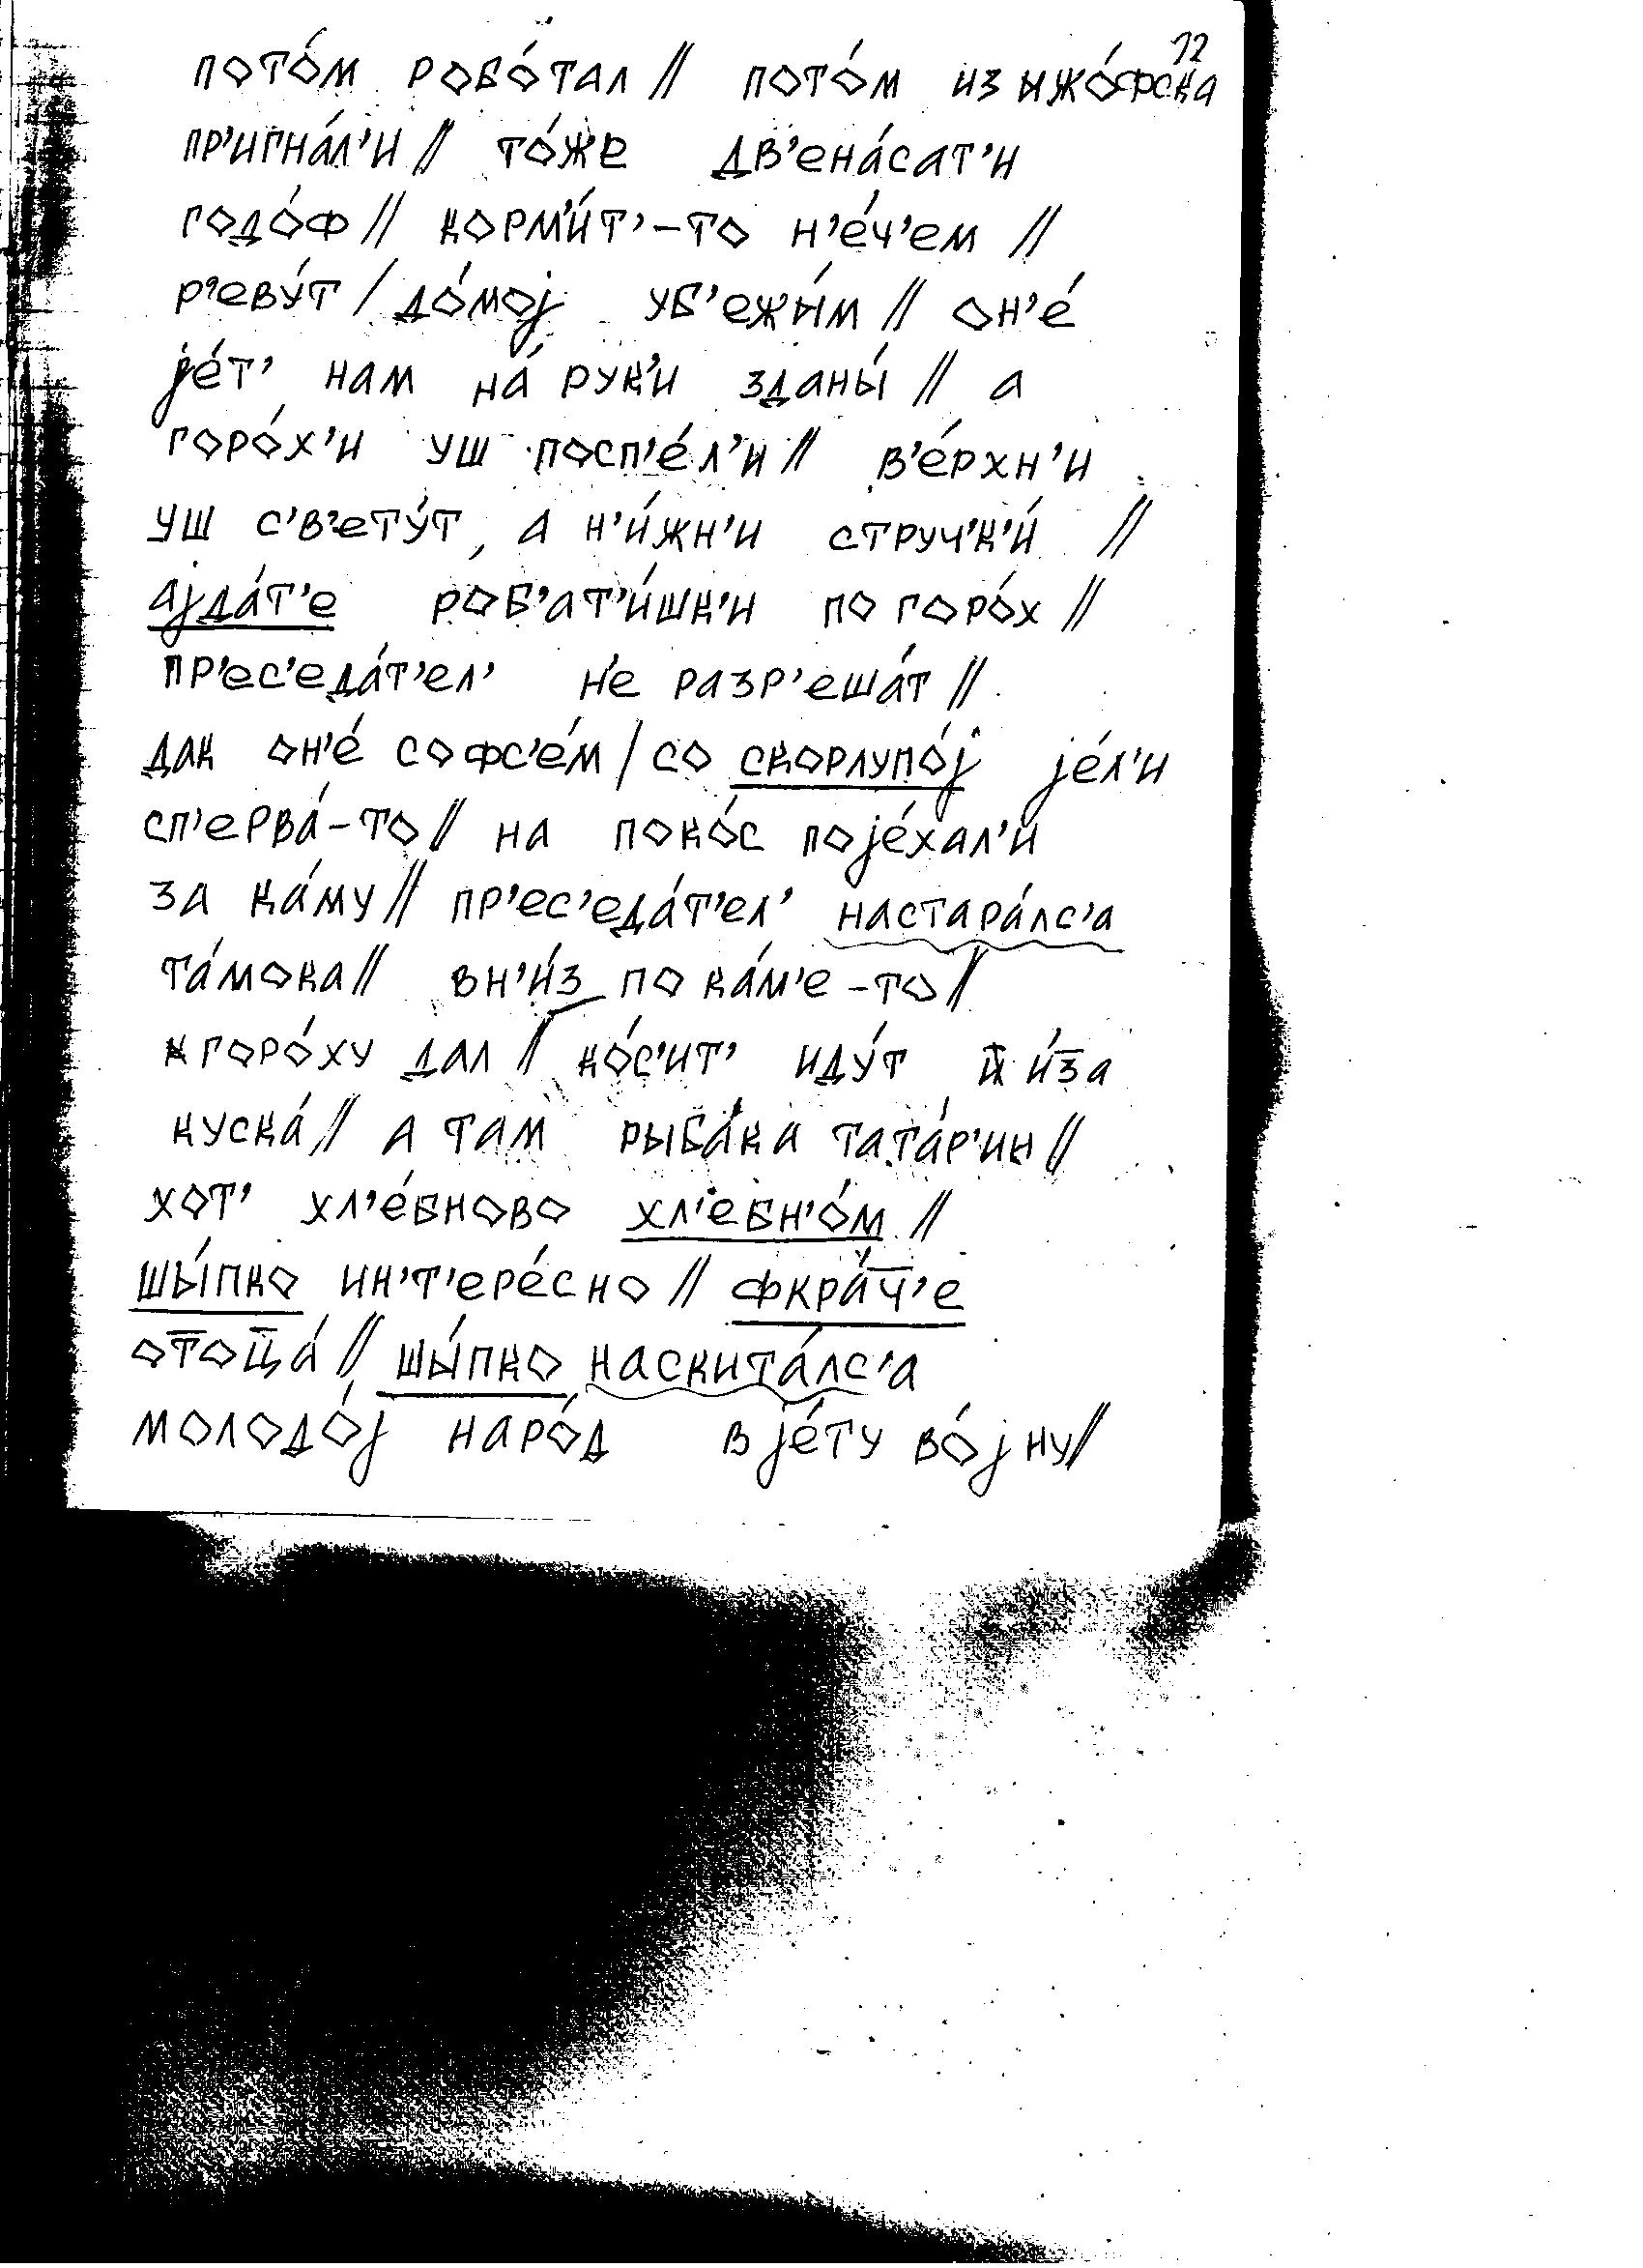 12
пото́м робо́тал // пото́м из ыжо́фска
пр'игна́л'и // то́же дв'ена́сат'и
годо́ф // корм'и́т'-то н'е́ч'ем //
р'еву́т / до́мој уб'ежы́м // он'е́
је́т' нам на́ рук'и зданы́ // а
горо́х'и уш посп'е́л'и // в'е́рхн'и
уш с'в'ету́т, а н'и́жн'и стручк'и́ //
ајда́т'е роб'ат'и́шк'и по горо́х //
пр'ес'еда́т'ел' н'е разр'еша́т //
дак он'е́ софс'е́м / со скорлупо́ј је́л'и
сп'ерва́-то // на поко́с поје́хал'и
за ка́му // пр'ес'еда́т'ел' настара́лс'а
та́мока // вн'и́з по ка́м'е-то //
к горо́ху дал // ко́с'ит' иду́т и́з̅а
куска́ // а там рыба́ка тата́р'ин //
хот' хл'е́бново хл'ебн'о́м //
шы́пко ин'т'ере́сно // фкра́ч̅'е
от̅оц̅а́ // шы́пко наскита́лс'а
молодо́ј наро́д в је́ту во́јну //